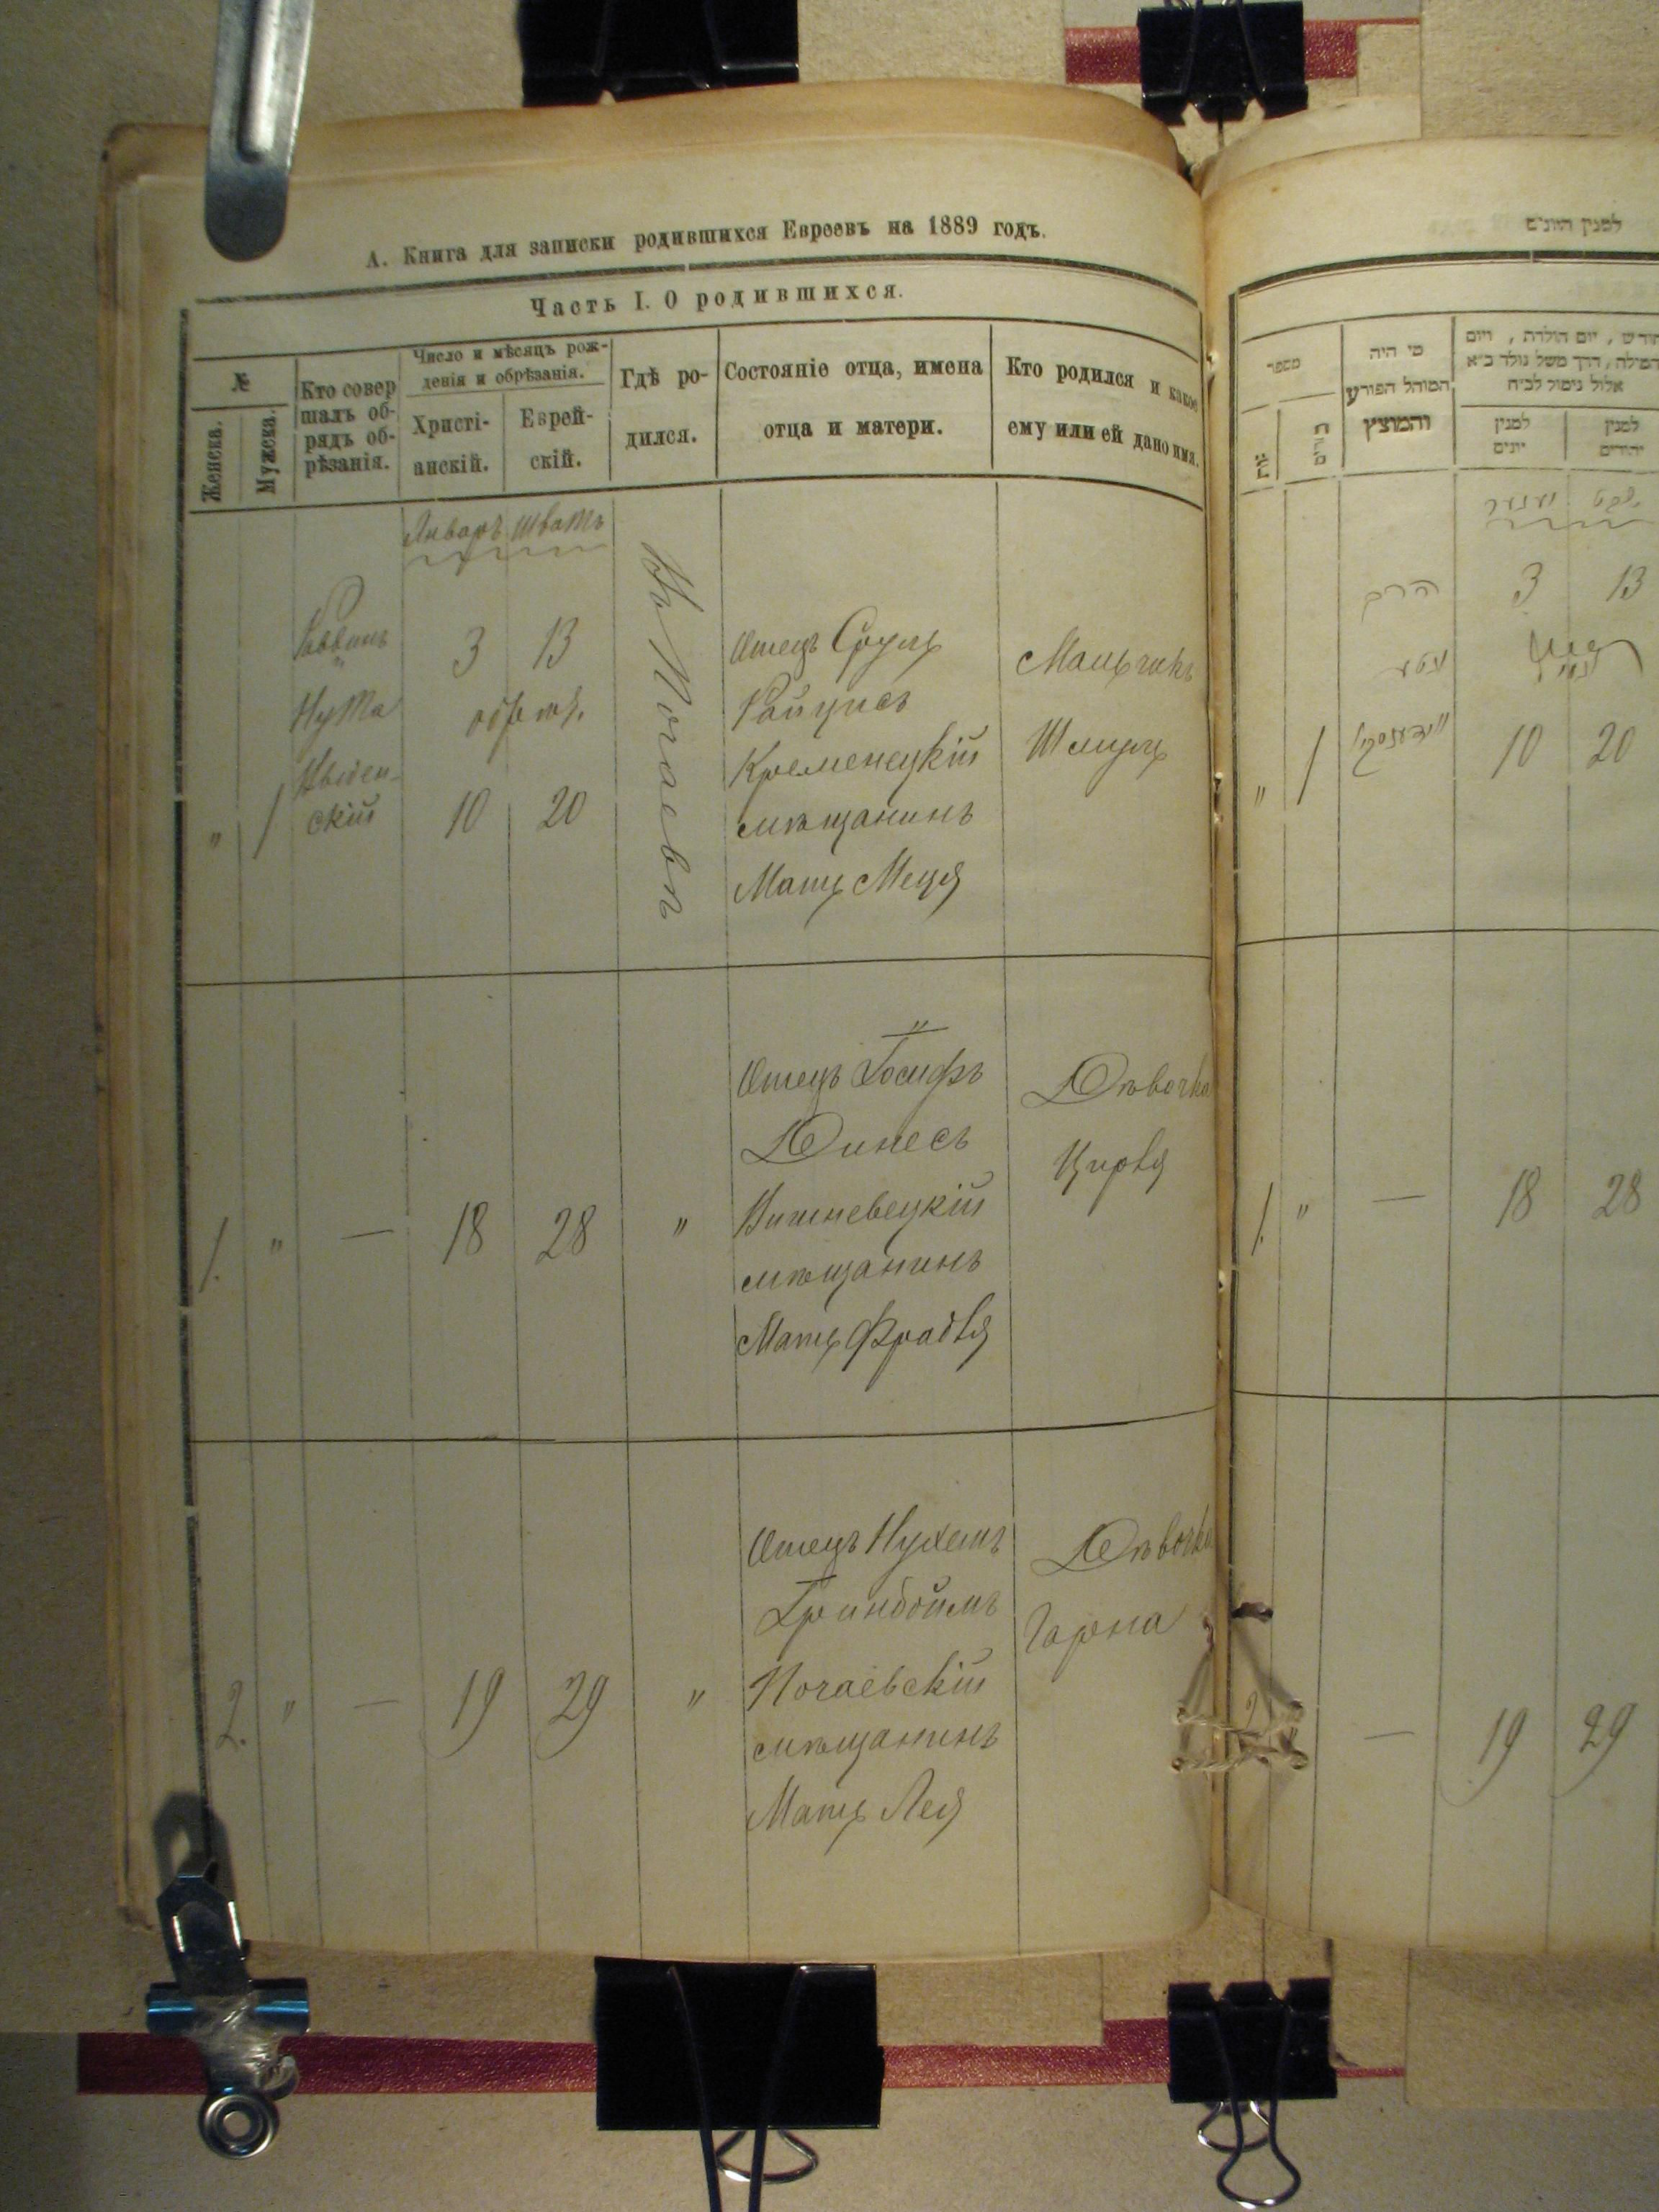 А. Книга для записки родившихся Евреевъ на 1889 годъ.
Часть I. О родившихся.
№
Женска.
Мужска.
Кто совер
шалъ об-
рядъ об-
рѣзанія.
Число и мѣсяцъ рож-
денія и обрѣзанія.
Христі-
анскій.
Еврей-
скій.
Гдѣ ро-
дился.
Состояніе отца, имена
отца и матери.
Кто родился и какое
ему или ей дано имя.
Январь Шватъ
" 1
Раввинъ
Нута
скій
3 13
обрѣз.
10 20
Въ Почаевѣ
Отецъ Сруль
Ройцисъ
Кременецкій
мѣщанинъ
Мать Меця
Мальчикъ
Шмуль
1. " — 18 28 "
Отецъ Іосифъ
Динесъ
Вишневецкій
мѣщанинъ
Мать Фрадля
Дѣвочка
Цирля
2. " — 19 29 "
Отецъ Нухемъ
Гринбоймъ
Почаевскій
мѣщанинъ
Мать Лея
Дѣвочка
למנין היונים
מספר
מי היה
המוהל הפורע
והמוצץ
חודש, יום הולדת, ויום
אלול נימול לב״ח
למנין
יונים
למנין
יהודים
יענער שבט
הרב
נטע
3 13
" 1 10 20
1. " — 18 28
2 — 19 29